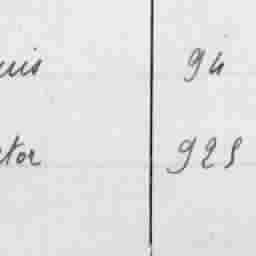 uis 94
ctor 925